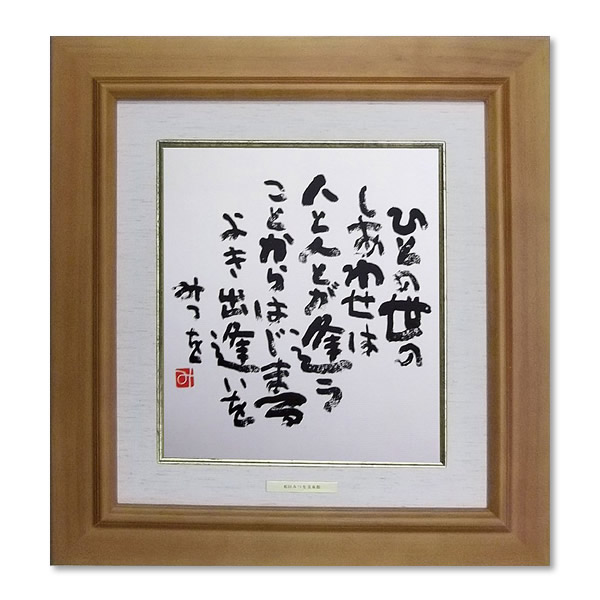 ひとの世の
しあわせは
人と人とが逢う
ことからはじまる
よき出逢いを
みつを
み
相田みつを美術館